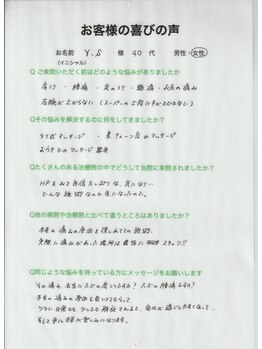 お客様の喜びの声
お名前 Y.S 様 40代 男性・女性
(イニシャル)
Q ご来院いただく前はどのような悩みがありましたか
肩コリ・腰痛・足のコリ・頭痛・お尻の痛み
右腕が上がらない(スーパーの上段に手がとどかない)
Qその悩みを解決するのに何をしてきましたか?
タイ式マッサージ・某チェーン店のマッサージ
おうちでのマッサージ器具
Qたくさんのある治療院の中でどうして当院に来院されましたか?
HPをみて自信たっぷりな
どんな施術なのか気になったので。
Q他の病院や治療院と比べて違うところはありましたか?
本当の痛みの原因を探しあてての施術。
実際に痛みがあった場所は最後に スッキリ!!
Q同じような悩みを持っている方にメッセージをお願いします
その痛み、本当にただの肩こりですか?ただの腰痛ですか?
本当の痛みの原因を見つけてもらって、
つらい日常から、少しでも解放されると、毎日が過ごしやすくなって…
そして年に 楽しみになります。